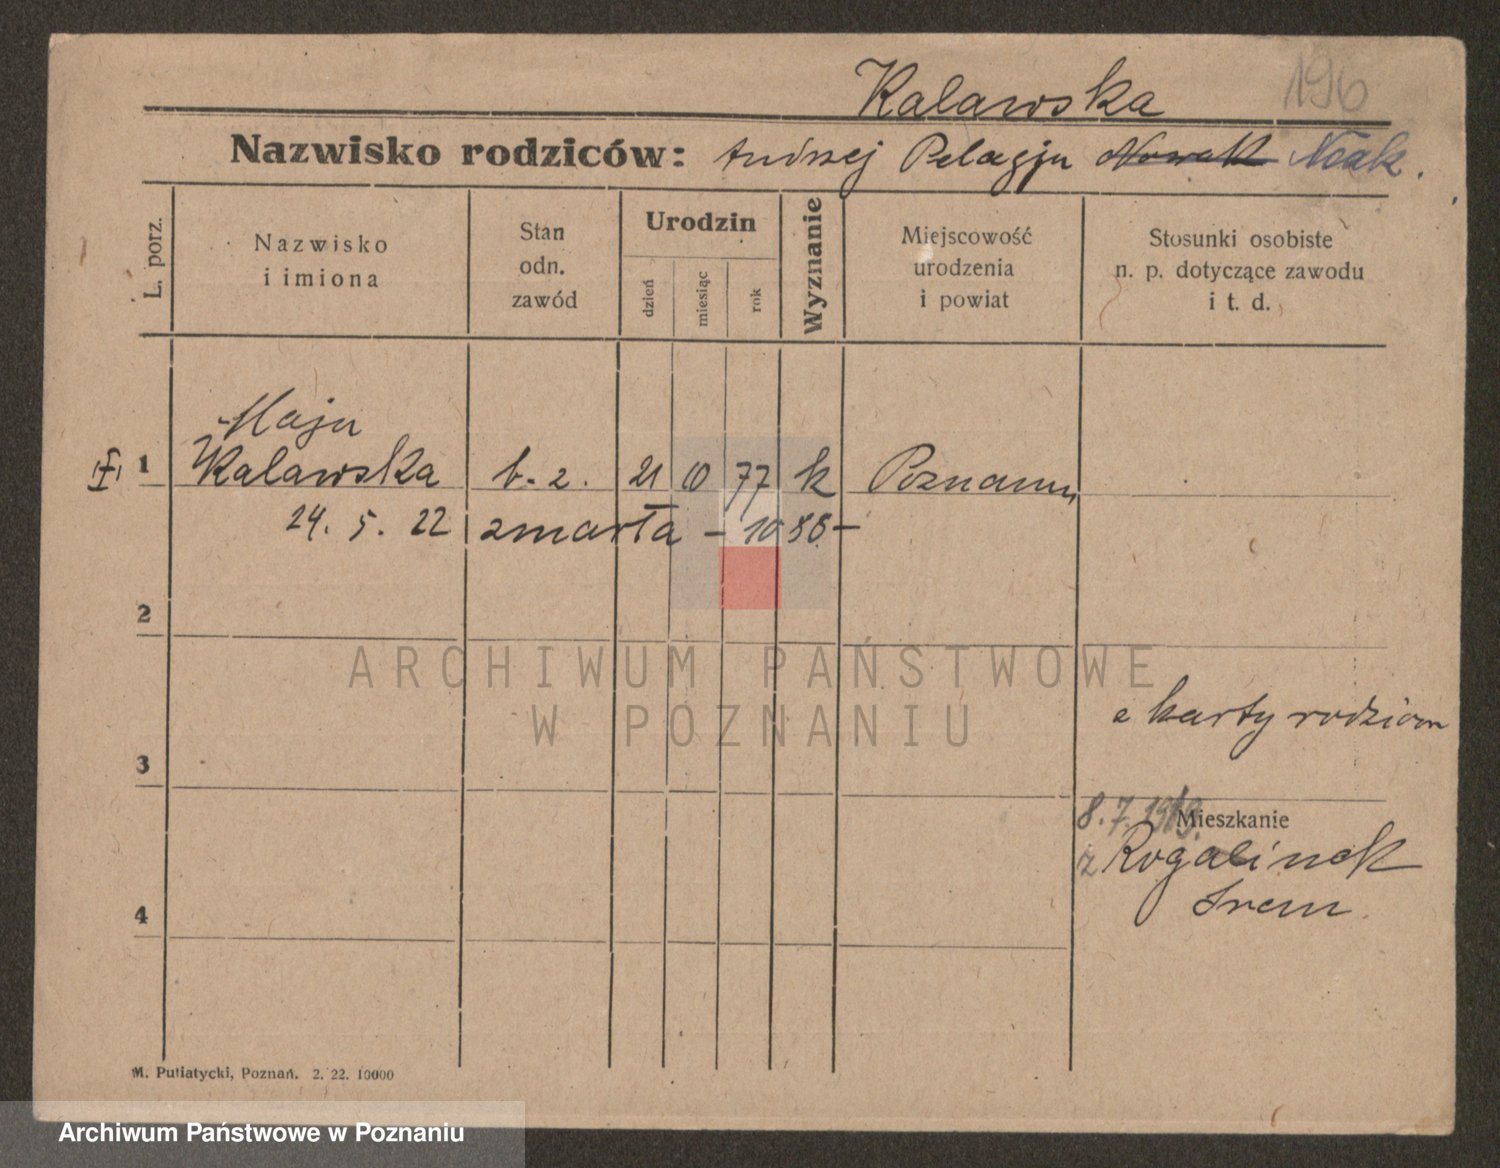 Kalawska
196
Nazwisko rodziców: Andrzej Pelagja Nowak Noak.
L. porz.
Nazwisko
i imiona
Stan
odn.
zawód
Urodzin
dzień
miesiąc
rok
Wyznanie
Miejscowość
urodzenia
i powiat
Stosunki osobiste
n. p. dotyczące zawodu
i t. d.
Maja
1 Kalawska b. z. 21 10 77 k Poznaniu
24. 5. 22 zmarła - 1088 -
2
ARCHIWUM PAŃSTWOWE
W POZNANIU
z karty rodziców
3
8. 7. 1919.
Mieszkanie
z Rogalinek
Śrem
4
M. Putiatycki, Poznań. 2. 22. 10000
Archiwum Państwowe w Poznaniu